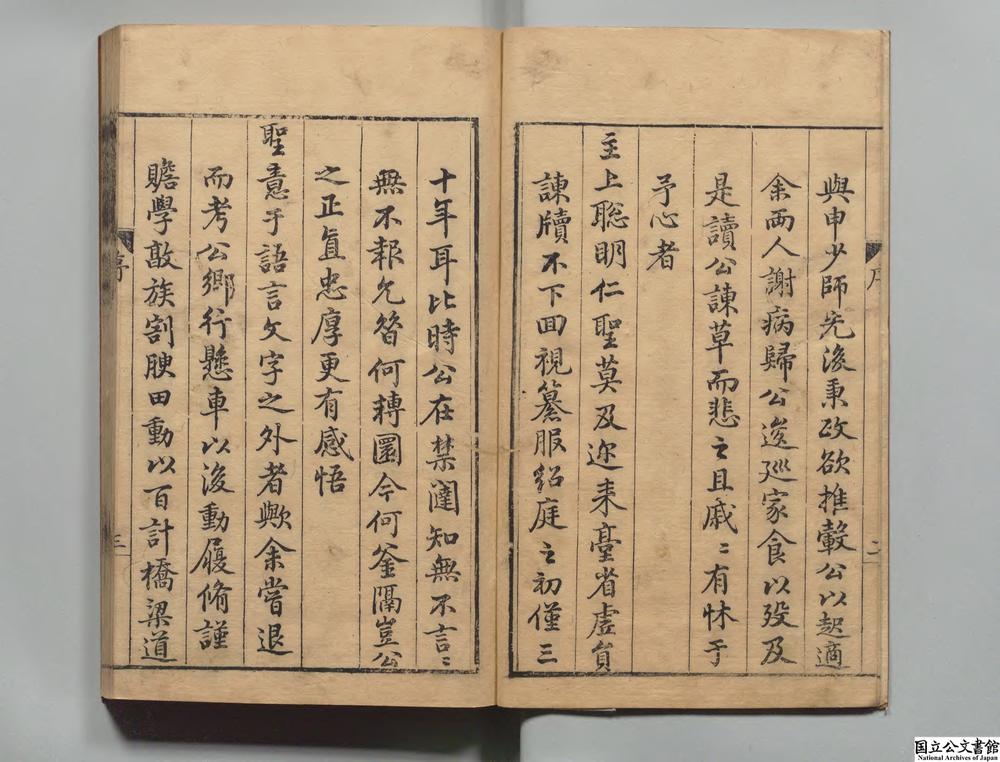 與申少師先後秉政欲推轂公以起適
余兩人謝病歸公遂廵家食以歿及
是讀公諫草而悲之且戚〻有怵于
予心者
主上聰明仁聖莫及迩来臺省虛負
諫牘不下回視纂服貂庭之初僅三
十年耳比時公在禁闥知無不言〻
無不報允笤何轉圜今何釜隔豈公
之正直忠厚更有感悟
聖意于語言文字之外者歟余嘗退
而考公鄉行懸車以後動履脩謹
贍學敦族割腴田動以百計橋梁道
序
二
序
三
国立公文書館
National Archives of Japan